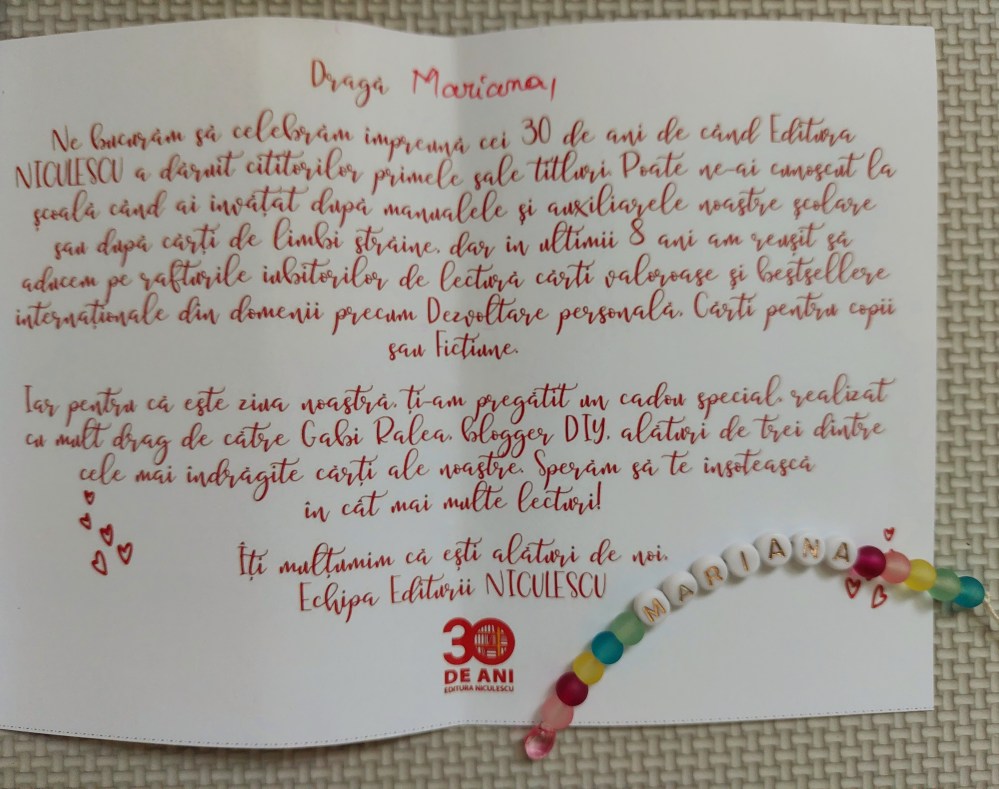 Dragă Mariana,
Ne bucurăm să celebrăm împreună cei 30 de ani de când Editura
NICULESCU a dăruit cititorilor primele sale titluri. Poate ne-ai cunoscut la
școală când ai învățat după manualele și auxiliarele noastre școlare
sau după cărți de limbi străine, dar în ultimii 8 ani am reușit să
aducem pe rafturile iubitorilor de lectură cărți valoroase și bestsellere
internaționale din domenii precum Dezvoltare personală, Cărți pentru copii
sau Ficțiune.
Iar pentru că este ziua noastră, ți-am pregătit un cadou special, realizat
cu mult drag de către Gabi Ralea, blogger DIY, alături de trei dintre
cele mai îndrăgite cărți ale noastre. Sperăm să te însoțească
în cât mai multe lecturi!
Îți mulțumim că ești alături de noi,
Echipa Editurii NICULESCU
MARIANA
30
DE ANI
EDITURA NICULESCU